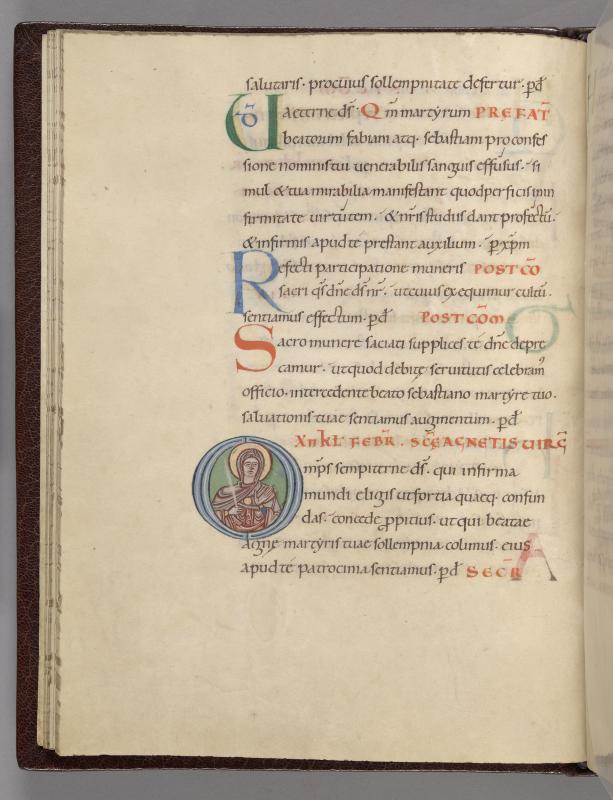 salutaris · procuius sollempnitate defertur · p̄d̄
UD̄ aeterne d̄s · Qm̄ martyrum PREFAT̄
beatorum fabiani atq· sebastiani pro confes
sione nominis tui uenerabilis sanguis effusus · si
mul & tua mirabilia manifestat quod perficis inin
firmitate uirtutem · & nr̄is studiis dant profectū ·
& infirmis apud te prestant auxilium · p̄ xp̄m
Refecti participatione muneris POST CŌ
sacri q̄s dn̄e d̄s nr̄ · ut cuius exequimur cultū ·
sentiamus effectum · p̄d̄ POST CŌM
Sacro munere saciati supplices te dn̄e depre
camur · ut quod debitę seruitutis celebram᷒
officio · intercedente beato sebastiano martyre tuo ·
saluationis tuae sentiamus augmentum · p̄d̄
XII KL̄ FEBR̄ · SC̄Ę AGNETIS UIRḠ
Omp̄s sempiterne d̄s · qui infirma
mundi eligis ut fortia quaeq· confun
das · concede ꝓpitius · ut qui beatae
agne martyris tuae sollempnia colimus · eius
apud te patrocinia sentiamus · p̄d̄ SECR̄